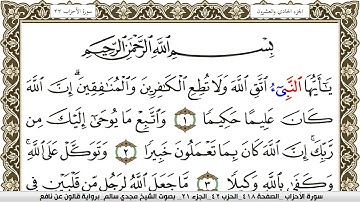 الجزء الحادي والعشرون
سورة الأحزاب ٣٣
بِسْمِ اللَّهِ الرَّحْمَٰنِ الرَّحِيمِ
يَٰأَيُّهَا النَّبِيءُ اتَّقِ اللَّهَ وَلَا تُطِعِ الْكَٰفِرِينَ وَالْمُنَٰفِقِينَ إِنَّ اللَّهَ
كَانَ عَلِيمًا حَكِيمًا ١ وَاتَّبِعْ مَا يُوحَىٰ إِلَيْكَ مِن
رَّبِّكَ إِنَّ اللَّهَ كَانَ بِمَا تَعْمَلُونَ خَبِيرًا ٢ وَتَوَكَّلْ عَلَى اللَّهِ
وَكَفَىٰ بِاللَّهِ وَكِيلًا ٣ مَّا جَعَلَ اللَّهُ لِرَجُلٍ مِّن قَلْبَيْنِ فِي
سورة الأحزاب . الصفحة ٤١٨ . الحزب ٤٢ . الجزء ٢١ . بصوت الشيخ مجدي سالم . برواية قالون عن نافع